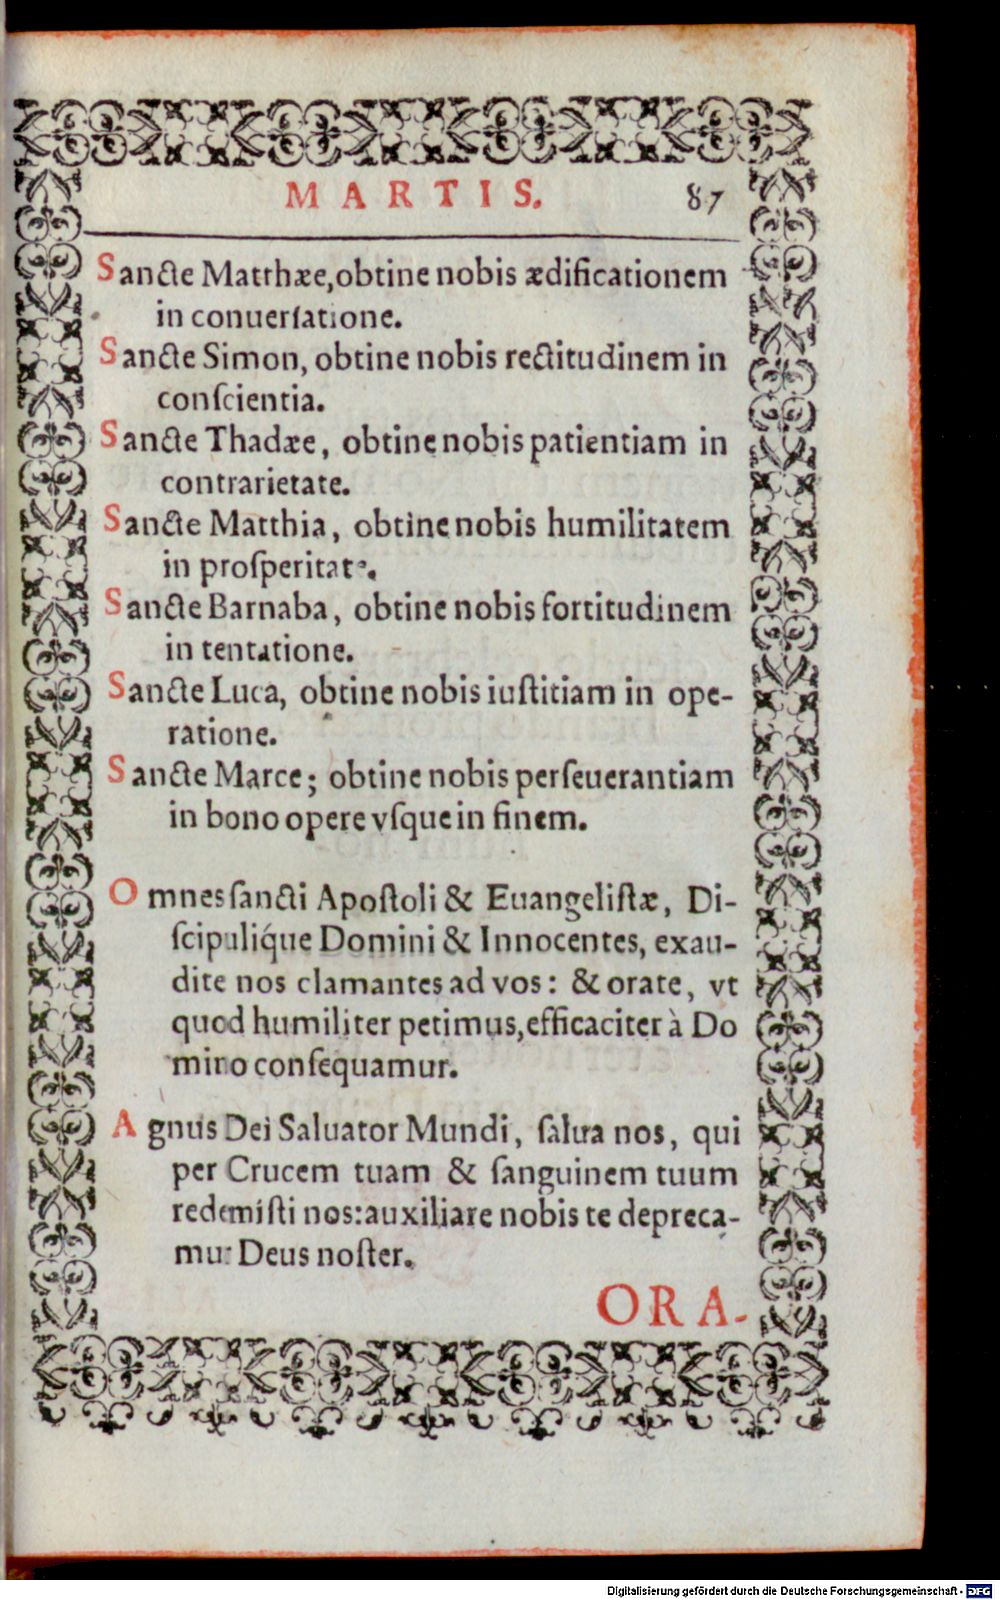 MARTIS. 87
Sancte Matthæe, obtine nobis ædificationem
in conuerſatione.
Sancte Simon, obtine nobis rectitudinem in
conſcientia.
Sancte Thadæe, obtine nobis patientiam in
contrarietate.
Sancte Matthia, obtine nobis humilitatem
in proſperitate.
Sancte Barnaba, obtine nobis fortitudinem
in tentatione.
Sancte Luca, obtine nobis iuſtitiam in ope-
ratione.
Sancte Marce; obtine nobis perſeuerantiam
in bono opere vſque in finem.
Omnes ſancti Apoſtoli & Euangeliſtæ, Di-
ſcipuliq́ue Domini & Innocentes, exau-
dite nos clamantes ad vos: & orate, vt
quod humiliter petimus, efficaciter à Do
mino conſequamur.
Agnus Dei Saluator Mundi, ſalua nos, qui
per Crucem tuam & ſanguinem tuum
redemiſti nos: auxiliare nobis te depreca-
mur Deus noſter.
ORA-
Digitalisierung gefördert durch die Deutsche Forschungsgemeinschaft - DFG